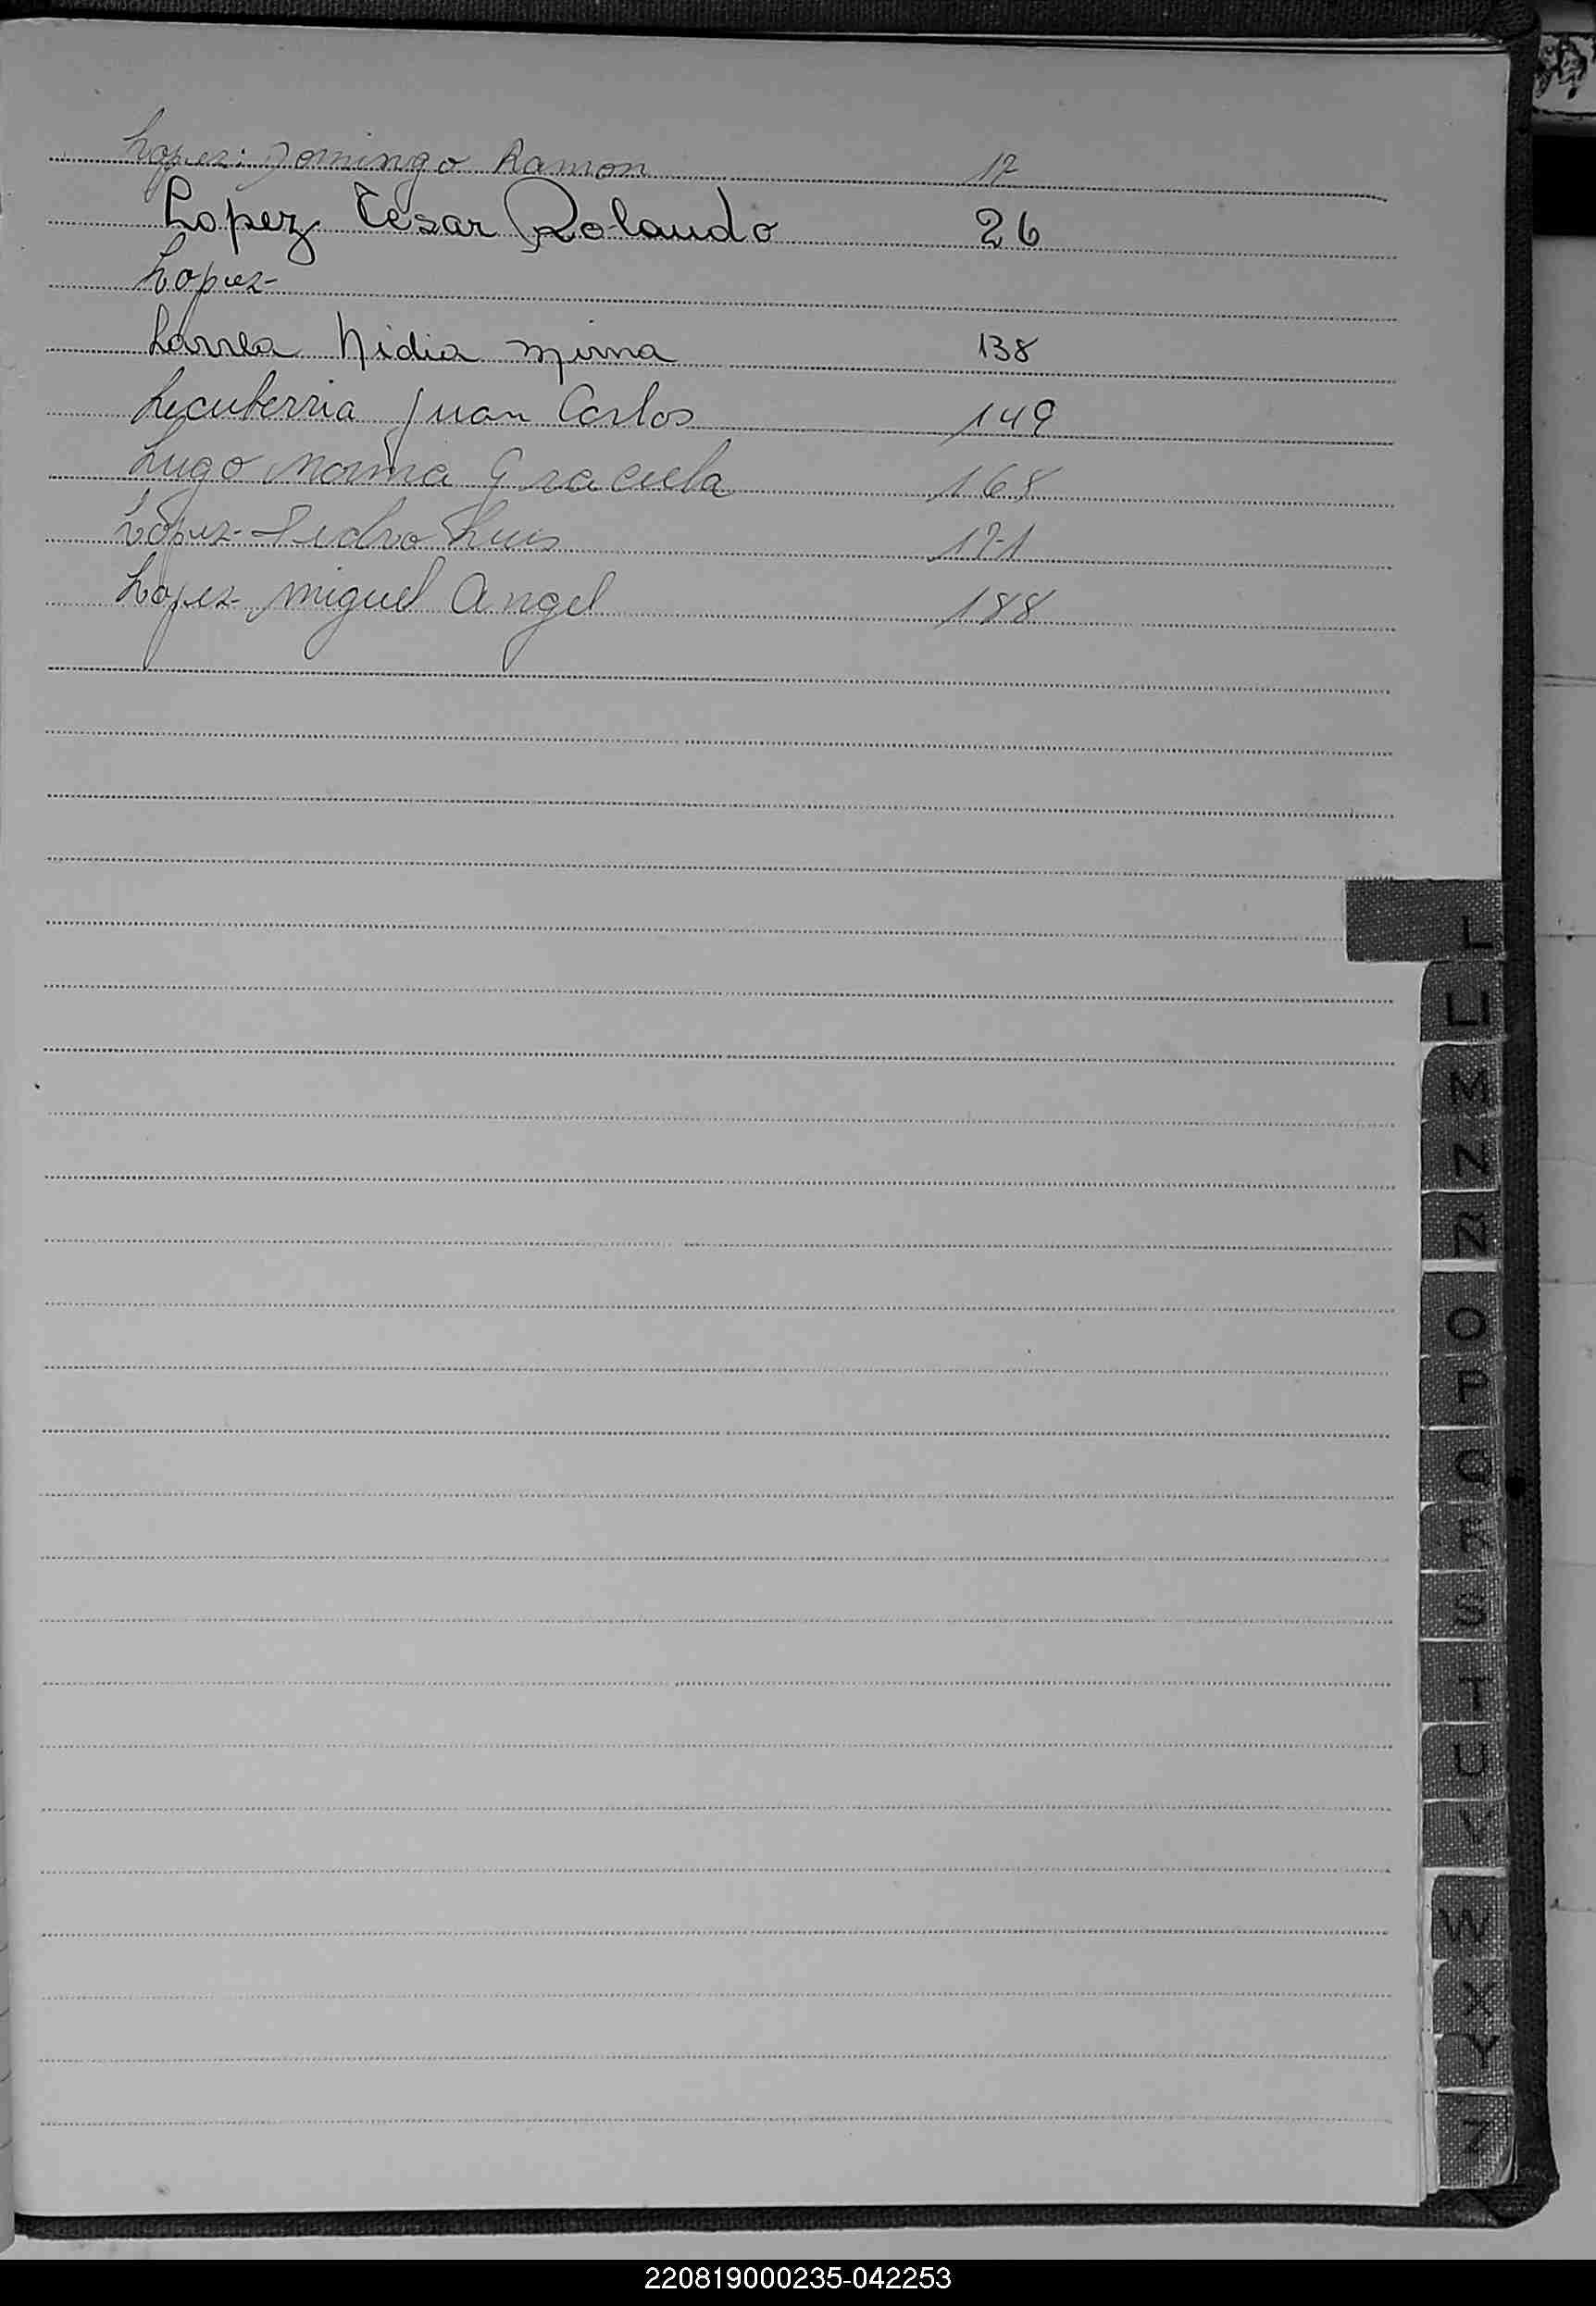 Lopez: Domingo Ramon 17
Lopez Cesar Rolando 26
Lopez-
Larrea Nidia Mirna 138
Lecuberria Juan Carlos 149
Lugo Norma Graciela 168
López- Pedro Luis 171
Lopez- Miguel Angel 188
L
LL
M
N
Ñ
O
P
Q
R
S
T
U
V
W
X
Y
Z
220819000235-042253